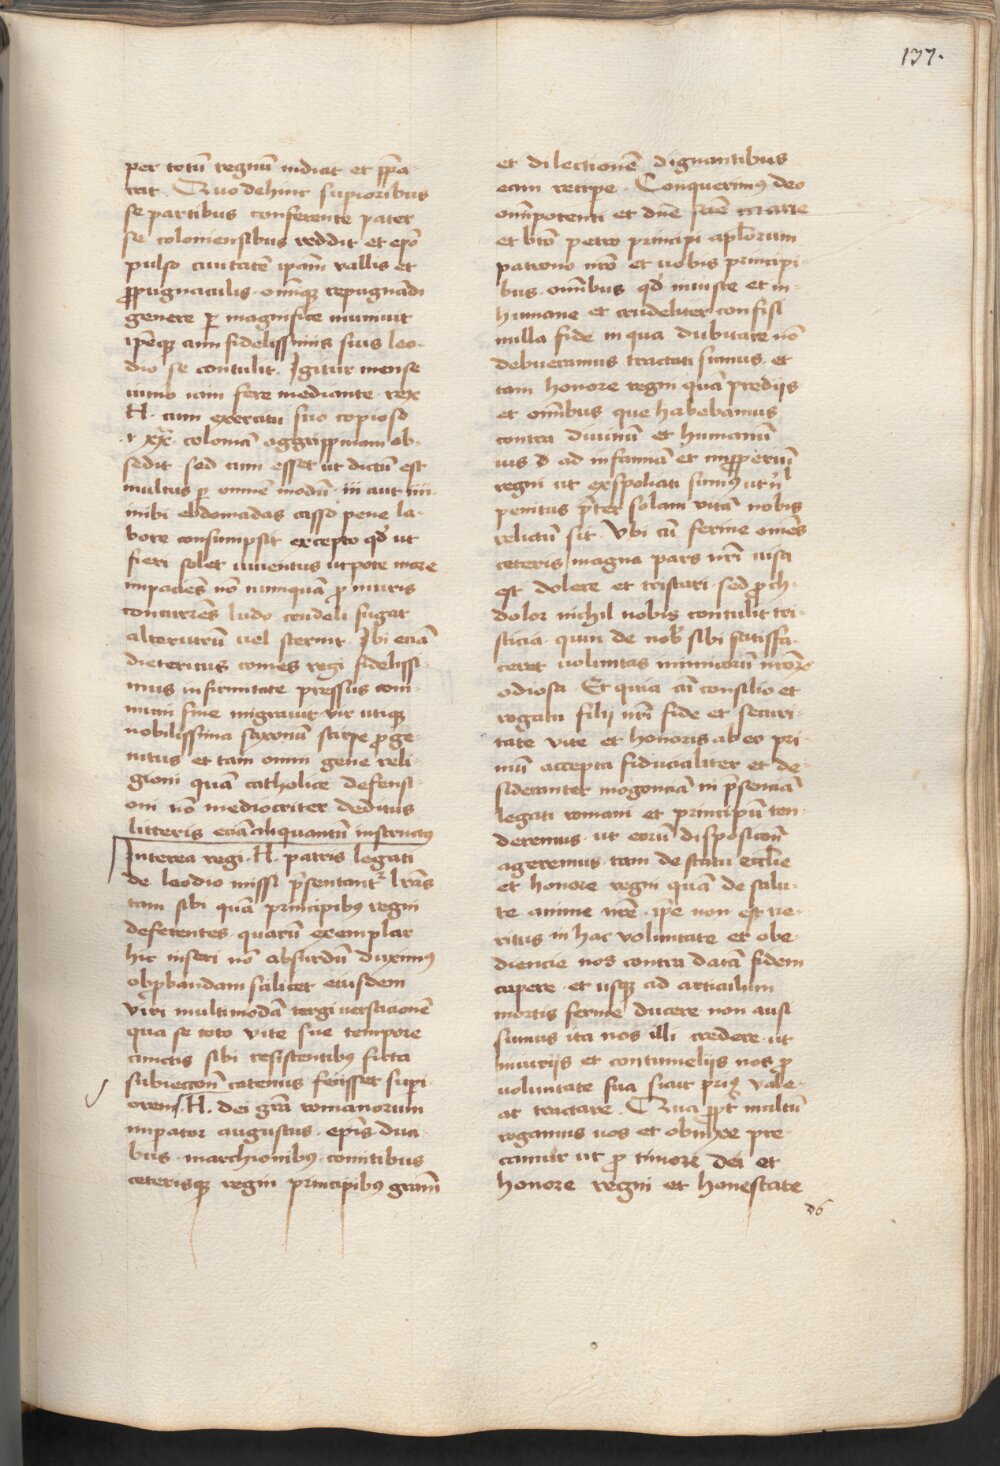 177.
per totū regnū indicit et ꝑpa
rat. Quo dehinc supioribus
se partibus conferente pater
se coloniensibus reddit et epō
pulso ciuitatē ipam vallis et
ꝓpugnaculis omīqꝫ repugnādi
genere ꝑ magnifice muniuit
ipeqꝫ cum fidelissimis suis leo-
dio se contulit. Igitur mense
iunio iam fere mediante rex
H. cum exercitu suo copioso
xx. coloniā aggrippinam ob-
sedit sed cum esset ut dictū est
multus ꝑ omnē modū iii aut iiii
inibi ebdomadas casso pene la-
bore consumpsit excepto qd ut
fieri solet iuuentus utpote more
impaciēs nō numquā ꝓ muris
concurrēs ludo crudeli fugat
alterutrū uel sternit. Ibi eciā
dietericus comes regi fidelissi
mus infirmitate pressus com-
muni fine migrauit vir utiqꝫ
nobilissima saxonū stirpe ꝓge-
nitus et tam omni gene reli-
gioni quā catholice defensi
oni nō mediocriter deditus
litteris eciā aliquantū instructꝰ
Interea regi H. patris legati
de leodio missi p̄sentant~ lrās
tam sibi quā principibꝰ regni
deferentes quarū exemplar
hic inseri nō absurdū duximꝰ
obꝓbandam scilicet eiusdem
viri multimodā tergiuersacionē
qua se toto vite sue tempore
cunctis sibi resistentibꝰ furta
subieccōn catenus fecisset supi
orem. H. dei grā romanorum
impator augustus epīs duci
bus marchionibꝰ comitibus
ceterisqꝫ regni principibꝰ gram̄
et dilectionē dignantibus
eam recipe. Conquerimꝰ deo
omīpotenti et dn̄e
et btō petro principi aplorum
patrono nrō et uobis principi
bus omībus qd iniuste et in-
humane et crudeliter confisi
nulla fide in qua dubitare nō
debueramus tractati sumus et
tam honore regni quā predijs
et omībus que habebamus
contra diuinū et humanū
ius ad infamiā et impꝓperiū
regni ut exspoliati sumꝰ ut nl
penitus p̄ter solam vitā nobis
relictū sit. Vbi cū ferme omēs
ceteris magna pars nrī iusti
est dolere et tristari sed ꝓch
dolor nichil nobis contulit tri-
sticia quin de nob sibi satisfa-
ceret voluntas inimicorū nrōꝝ
odiosa Et quia cū consilio et
rogatu filij nrī fide et securi-
tate vite et honoris ab eo pri-
mū accepta fiducialiter et de-
sideranter mogonciā in p̄senciā
legati romani et principū ten-
deremus ut eorū disposicōn
ageremus tam de statu ecclie
et honore regni quā de salu-
te anime nrē ipe non est ue-
ritus in hac voluntate et obe
diencie nos contra datā fidem
capere et usqꝫ ad articulum
mortis ferme ducere non ausi
sumus ita nos illi credere ut
iniurijs et contumelijs nos ꝓ
voluntate sua sicut priꝰ vale-
at tractare. Qua ꝓpt multū
rogamus uos et obnixe pre-
camur ut ꝓ timore dei et
honore regni et honestate